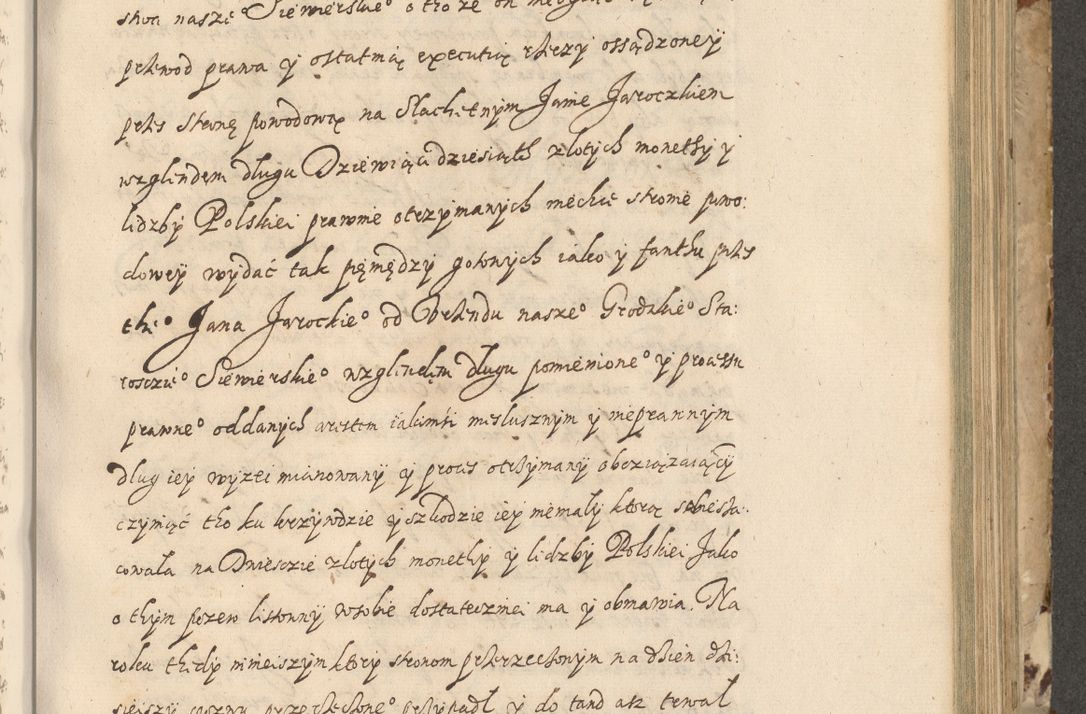 stwa nasze° Siewierskie° o tho że on
przewod prawa y ostatnią executią rzeczy ossądzoney
przes stronę powodową na Slachetnym Janie Jaroczkiem
wzglendem długu Dziewiąci dziesiąth złotych monethy y
lidzby Polskiei prawnie otrzymanych niechce stronie powo:
dowey wydać tak pięniędzy gotowych iako y fanthu przes
the° Jana Jarockie° od Vrzendu nasze° Grodzkie° Sta:
rosczie° Siewierskie° wzglendem długu pomienione° y processu
prawne° oddanych arestem iakimsi niesłusznym y nieprawnym
dług iey wyzei mianowany y proces otrzymany obcziązaiący
czyniąc tho ku krzywdzie y szkodzie iey niemały ktorą sobie sza:
cowała na Dwiesczie złotych monethy y lidzby Polskiei Jako
o thym pozew listowny wsobie dostateczniei ma y obmawia. Na
roku thedy ninieiszym ktory stronom przerzeczonym na dzien dzi:
sieiszy pozwu przerzeczone° przypadł y do tand asz trwał